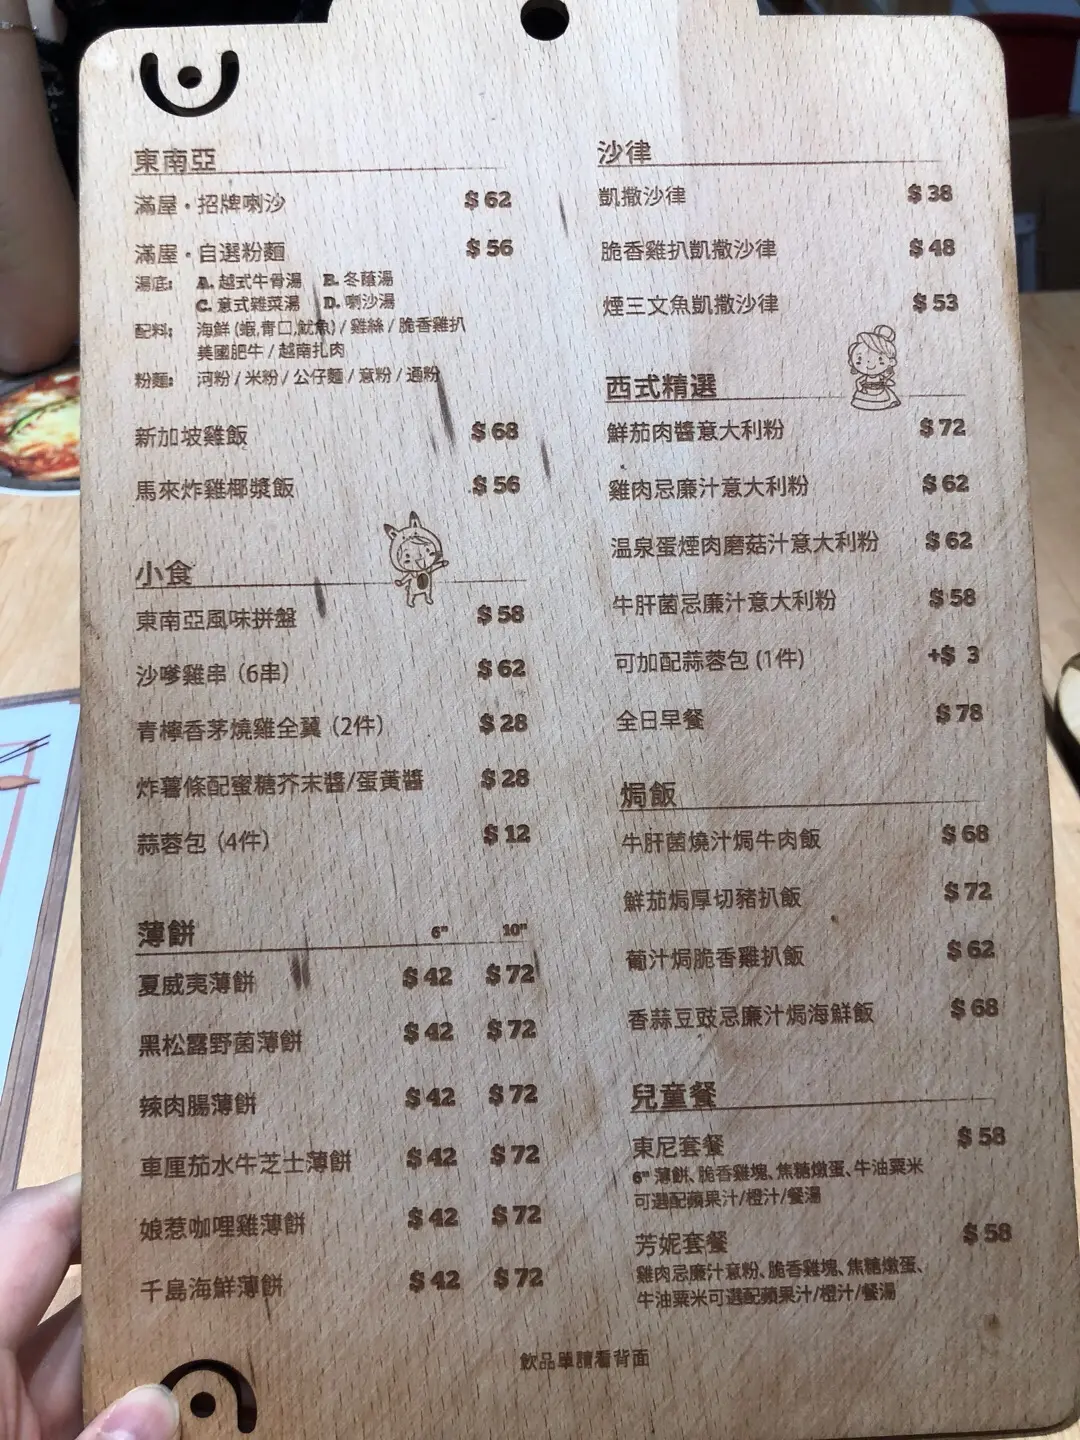 東南亞
滿屋・招牌喇沙 $ 62
滿屋・自選粉麵 $ 56
湯底: A. 越式牛骨湯 B. 冬蔭湯
C. 意式雜菜湯 D. 喇沙湯
配料: 海鮮 (蝦,青口,魷魚) / 雞絲 / 脆香雞扒
美國肥牛 / 越南扎肉
粉麵: 河粉 / 米粉 / 公仔麵 / 意粉 / 通粉
新加坡雞飯 $ 68
馬來炸雞椰漿飯 $ 56
小食
東南亞風味拼盤 $ 58
沙嗲雞串 (6串) $ 62
青檸香茅燒雞全翼 (2件) $ 28
炸薯條配蜜糖芥末醬/蛋黃醬 $ 28
蒜蓉包 (4件) $ 12
薄餅 6" 10"
夏威夷薄餅 $ 42 $ 72
黑松露野菌薄餅 $ 42 $ 72
辣肉腸薄餅 $ 42 $ 72
車厘茄水牛芝士薄餅 $ 42 $ 72
娘惹咖哩雞薄餅 $ 42 $ 72
千島海鮮薄餅 $ 42 $ 72
沙律
凱撒沙律 $ 38
脆香雞扒凱撒沙律 $ 48
煙三文魚凱撒沙律 $ 53
西式精選
鮮茄肉醬意大利粉 $ 72
雞肉忌廉汁意大利粉 $ 62
温泉蛋煙肉磨菇汁意大利粉 $ 62
牛肝菌忌廉汁意大利粉 $ 58
可加配蒜蓉包 (1件) +$ 3
全日早餐 $ 78
焗飯
牛肝菌燒汁焗牛肉飯 $ 68
鮮茄焗厚切豬扒飯 $ 72
葡汁焗脆香雞扒飯 $ 62
香蒜豆豉忌廉汁焗海鮮飯 $ 68
兒童餐
東尼套餐 $ 58
6" 薄餅、脆香雞塊、焦糖燉蛋、牛油粟米
可選配蘋果汁/橙汁/餐湯
芳妮套餐 $ 58
雞肉忌廉汁意粉、脆香雞塊、焦糖燉蛋、
牛油粟米可選配蘋果汁/橙汁/餐湯
飲品單請看背面